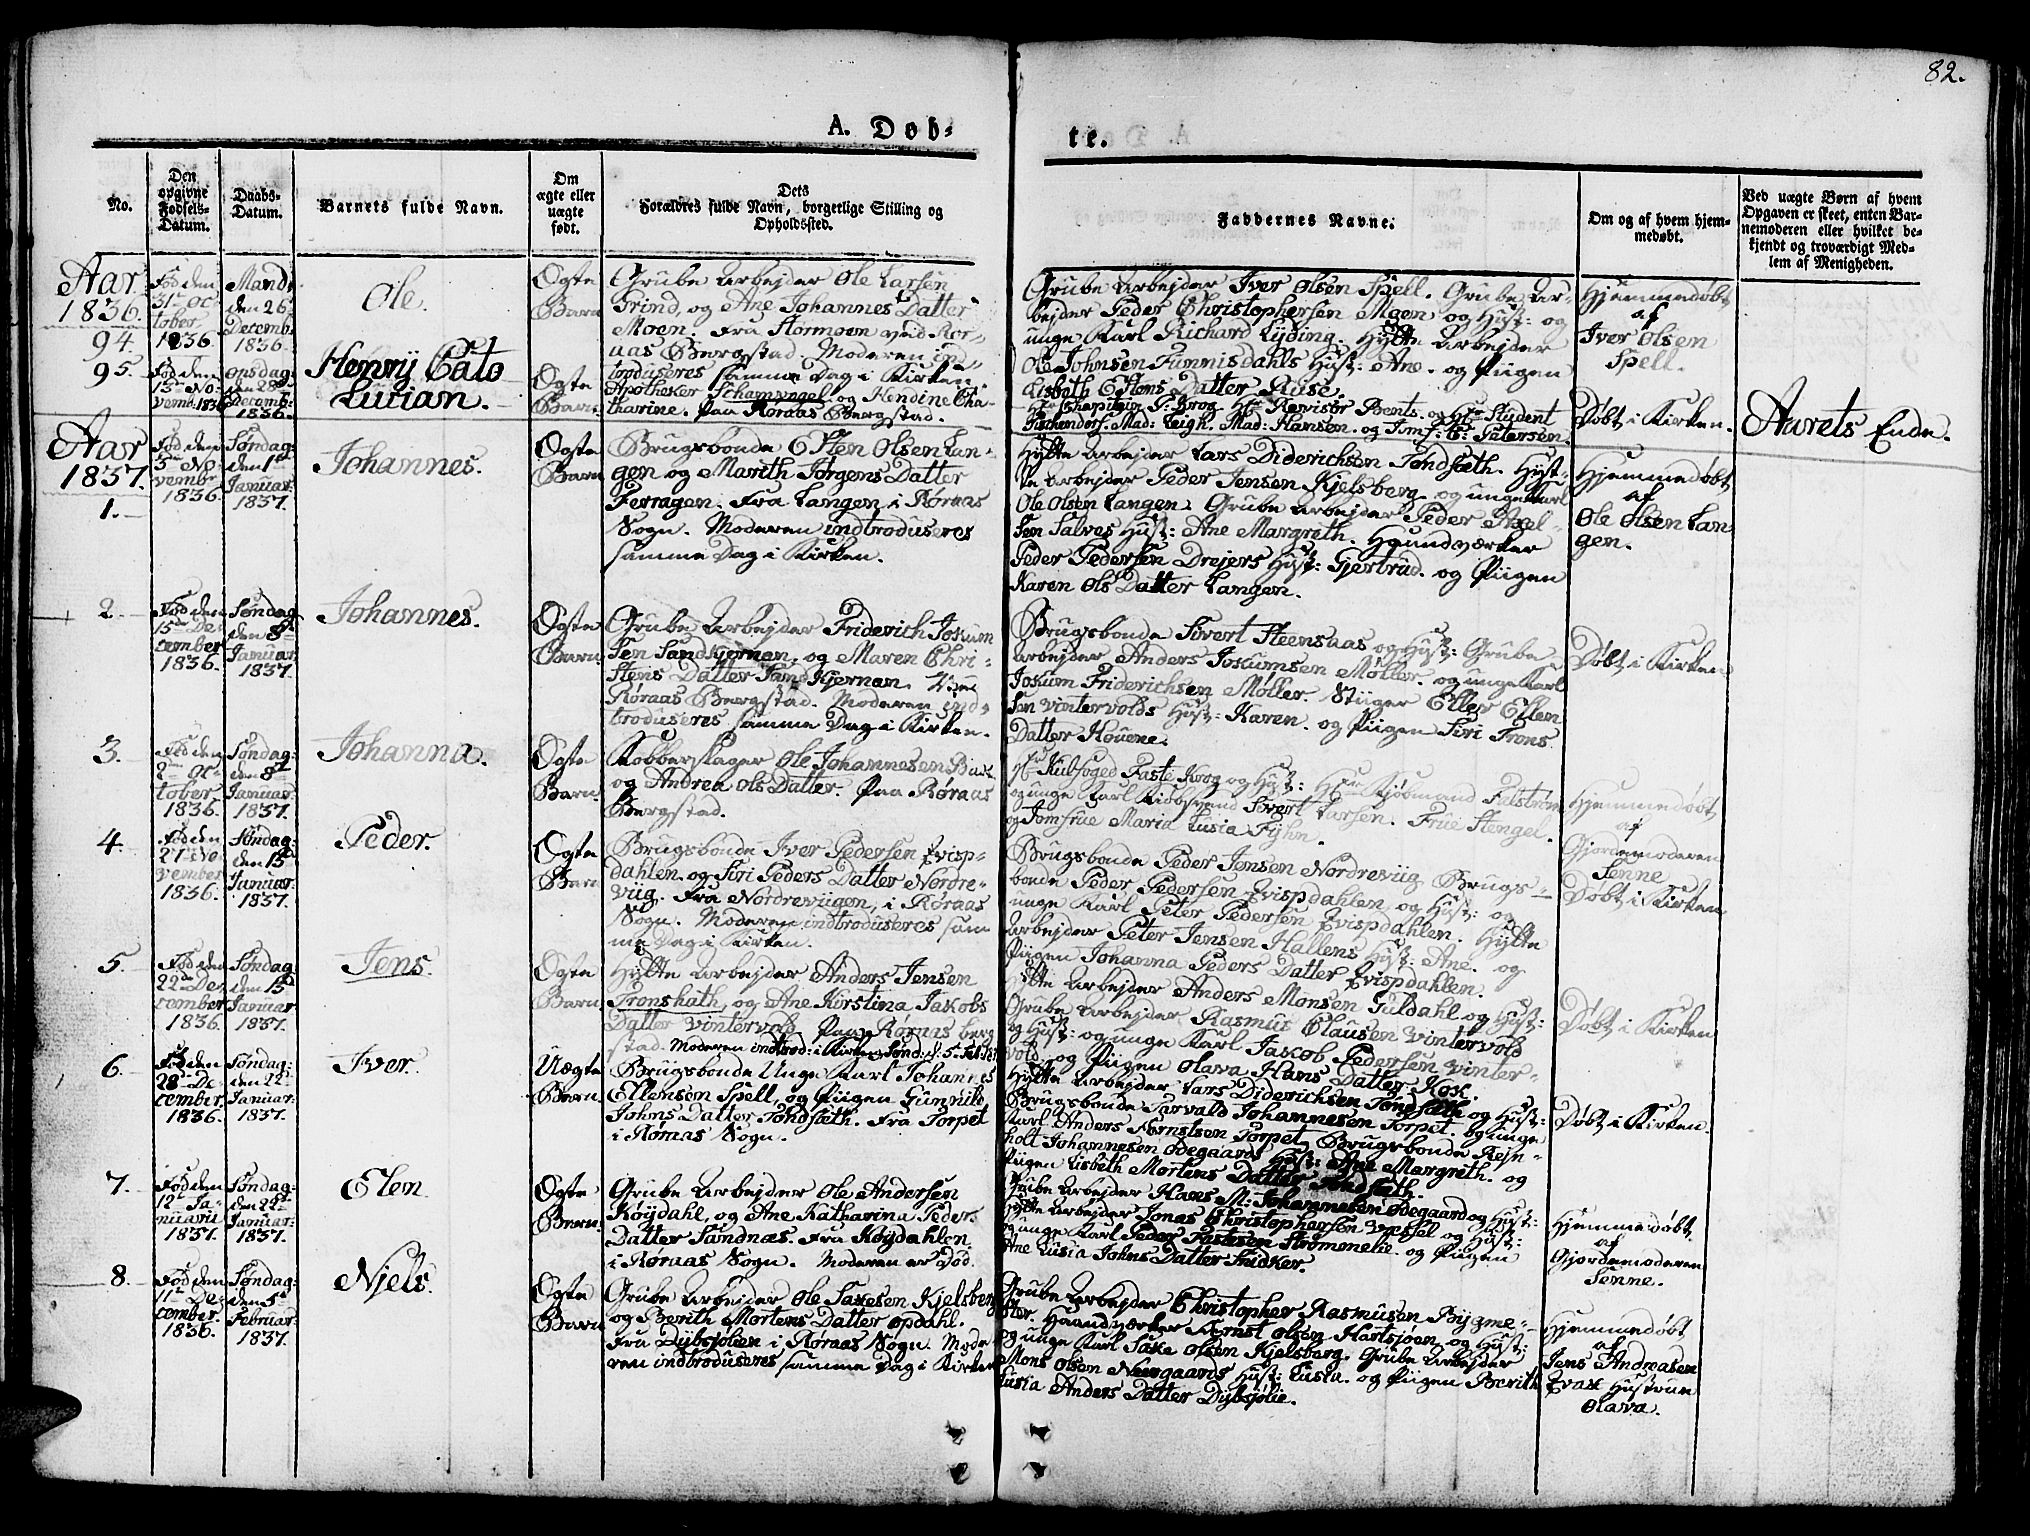 82.
A. Døb-
te.
No.
Den
opgivne
Fødsels-
Datum.
Daabs-
Datum.
Barnets fulde Navn.
Om
ægte eller
uægte
født.
Dets
Forældres fulde Navn, borgerlige Stilling og
Opholdssted.
Faddernes Navne.
Om og af hvem hjem-
medøbt.
Ved uægte Børn af hvem
Opgaven er skeet, enten Bar-
nemoderen eller hvilket be-
kjendt og troværdigt Med-
lem af Menigheden.
Aar
1836.
94.
Fød den
31te Oc-
tober
1836.
Mand:
den 26
Decemb:
1836.
Ole.
Ægte
Barn
Grube Arbejder Ole Larsen
Trind, og Ane Johannes Datter
Moen. Fra Stormoen ved Rør-
aas Bergstad. Moderen ind-
troduseres samme Dag i Kirken.
Grube Arbejder Iver Olsen Spell. Grube Ar-
bejder Peder Christophersen Moen og Hust: og
unge Karl Richard Lyding. Hytte Arbejder
Ole Johnsen Funnisdahls Hust: Ane. og Piigen
Lisbeth Estens Datter Ruse.
Hjemmedøbt
af
Iver Olsen
Spell.
95.
Fød den
15de No-
vemb: 1836
Onsdag
den 28de
Decemb:
1836.
Henrij Cato
Lucian.
Ægte
Barn.
Apotheker Schamvogel og Hendine Cha-
tharine. Paa Røraas Bergstad.
Revisor Bents. og Hr Student
Fischendorf. Mad: Leigh. Mad: Hansen. og Jomf: C: Petersen.
Døbt i Kirken.
Aarets Ende.
Aar
1837.
1.
Fød den
5te No-
vember
1836.
Søndag
den 1ste
Januar:
1837.
Johannes.
Ægte
Barn
Brugsbonde Esten Olsen Lan-
gen og Marith Jørgens Datter
Ferragen. Fra Langen i Røraas
Sogn. Moderen indtroduseres
samme Dag i Kirken.
Hytte Arbejder Lars Diderichsen Tøndsæth. Hyt-
te Arbejder Peder Jensen Kjelsberg. og unge Karl
Ole Olsen Langen. Grube Arbejder Peder Axel-
sen Salves Hust: Ane Margreth. Haandværker
Peder Pedersen Drejers Hust: Gjertrud. og Piigen
Karen Ols Datter Langen.
Hjemmedøbt
af
Ole Olsen Lan-
gen.
2.
Fød den
15de De-
cember
1836.
Søndag
den 8de
Januar:
1837.
Johannes.
Ægte
Barn.
Grube Arbejder Friderich Jokum
sen Sandkjernan, og Maren Chri-
stens Datter Sandkjernan. Ved
Røraas Bergstad. Moderen ind-
troduseres samme Dag i Kirken.
Brugsbonde Sivert Steensaas og Hust: Grube
Arbejder Anders Jokumsen Møller. og unge Karl
Jokum Friderichsen Møller. Stiiger Eller Ellen
sen Vintervolds Hust: Karen. og Piigen Siri Trons
Datter Houene.
Døbt i Kirken
3.
Fød den
2den Oc-
tober
1836.
Søndag
den 8de
Januar:
1837.
Johanna.
Ægte
Barn.
Kobberslager Ole Johannesen
og Andrea Ols Datter. Paa Røraas
Bergstad.
Hr Kulfoged Faste Krog og Hust: Hr Kjøbmand Falstrøm
og unge Karl Kiøbsvend Sivert Larsen. Frue Stengel.
og Jomfrue Maria Lusia Fyhn.
Hjemmedøbt
af
Gjordemoderen
Senne
4.
Fød den
27de No-
vember
1836.
Søndag
den 15de
Januar:
1837.
Peder.
Ægte
Barn
Brugsbonde Iver Pedersen Qvisp-
dahlen. og Siri Peders Datter Nordre-
viig. Fra Nordreviigen, i Røraas
Sogn. Moderen indtroduseres sam
me Dag i Kirken.
Brugsbonde Peder Jensen Nordreviig. Brugs-
bonde Peder Pedersen Qvispdahlen, og Hust: og
unge Karl Peter Pedersen Qvispdahlen. Hytte
Arbejder Peter Jensen Hallens Hust: Ane. og
Piigen Johanna Peders Datter Qvispdahlen.
Døbt i Kirken
5.
Fød den
22de De-
cember
1836.
Søndag
den 15de
Januar
1837.
Jens.
Ægte
Barn.
Hytte Arbejder Anders Jensen
Tronshath, og Ane Kirstina Jakobs
Datter Vintervold. Paa Røraas berg
stad. Moderen indtrod: i Kirken Sønd: d: 5. Feb: 1837
Hytte Arbejder Anders Monsen Guldahl og Hust:
Grube Arbejder Rasmus Clausen Vintervold
og Hust: og unge Karl Jakob Pedersen Vinter-
vold. og Piigen Olava Hans Datter Kox.
Døbt i Kirken
6.
Fød den
28de De-
cember
1836.
Søndag:
den 22de
Januar:
1837.
Iver.
Uægte
Barn.
Brugsbonde Unge Karl Johannes
Ellensen Spell, og Piigen Gunnild
Johns Datter Tøndsæth. Fra Torpet
i Røraas Sogn.
Hytte Arbejder Lars Diderichsen Tøndsæth og Hust:
Brugsbonde Tarvald Johannesen Torpet. og unge
Karl Anders Arntsen Torpet. Brugsbonde Rejn-
holt Johannesen Ødegaards Hust: Ane Margrith. og
Piigen Lisbeth Mortens Datter Tøndsæth.
Døbt i Kirken.
7.
Fød den
12te Ja-
nuarii
1837.
Søndag:
den 22de
Januar:
1837.
Elen
Ægte
Barn.
Grube Arbejder Ole Andersen
Køydahl, og Ane Katharina Peder.
Datter Sandnæs. Fra Køydahlen
i Røraas Sogn. Moderen er Død.
Grube Arbejder Hans M: Johannesen Ødegaard og Hust:
Hytte Arbejder Jonas Christophersen Vessel og Hust:
og unge Karl Peder Fastesen Strømenelie. og Piigen
Ane Lusia Johns Datter Tricker.
Hjemmedøbt
af
Gjordemoderen
Senne.
8.
Fød den
11te De-
cember.
1836.
Søndag:
den 5te
Februar:
1837.
Njels.
Ægte
Barn
Grube Arbejder Ole Saxesen Kjelsberg
og Berith Mortens Datter Opdahl.
Fra Dybsjølien i Røraas Sogn. Mode
ren indtroduseres samme Dag i Kirken
Grube Arbejder Christopher Rasmusen Bygme-
ster. Haandværker Arnst Olsen Hartsjøen, og Hust:
og unge Karl Saxe Olsen Kjelsberg. Grube Arbejder
Mons Olsen Neergaards Hust: Lusia. og Piigen Berith
Lusia Anders Datter Dybsjølie.
Hjemmedøbt
af
Jens Andreasen
Hustrue
Olava.